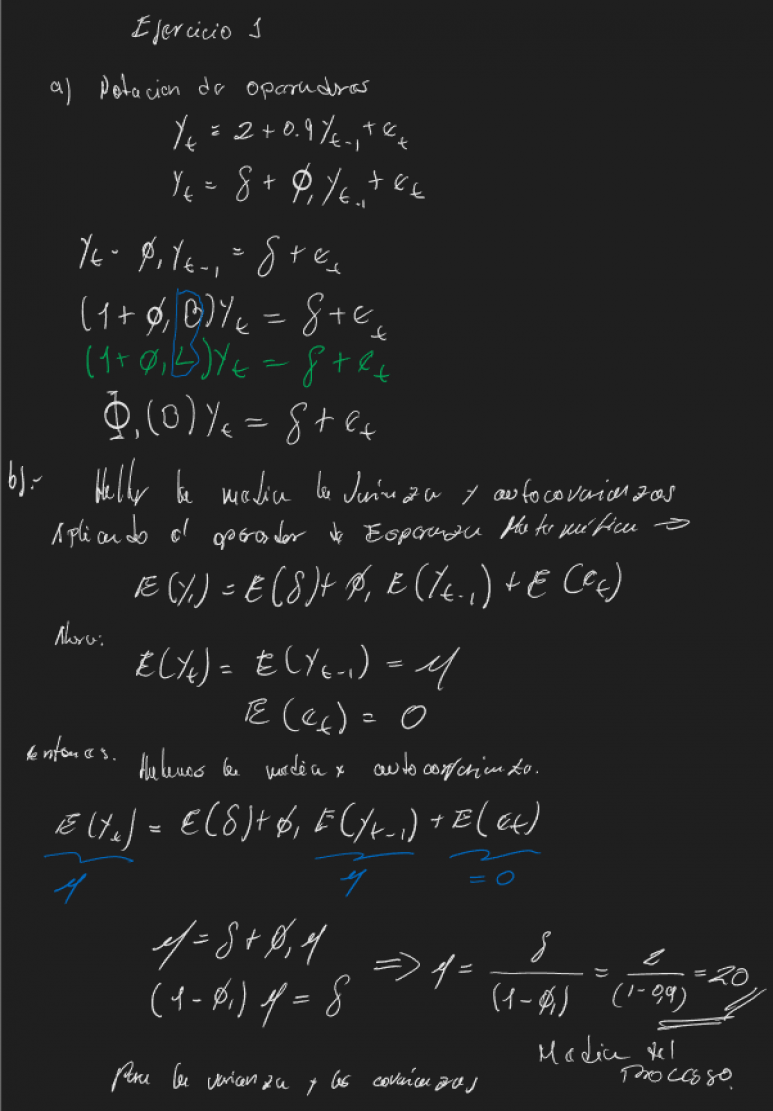 Ejercicio 1
a) Notacion de operadores
Y_t = 2 + 0.9 Y_{t-1} + e_t
Y_t = δ + ϕ_1 Y_{t-1} + e_t
Y_t - ϕ_1 Y_{t-1} = δ + e_t
(1 + ϕ_1 B) Y_t = δ + e_t
(1 + ϕ_1 L) Y_t = δ + e_t
Φ_1 (B) Y_t = δ + e_t
b).- la media la varianza y autocovarianzas
Aplicando el operador de Esperanza Matemática ⇒
E(Y_t) = E(δ) + ϕ_1 E(Y_{t-1}) + E(e_t)
Ahora:
E(Y_t) = E(Y_{t-1}) = μ
E(e_t) = 0
entonces. la media
E(Y_t) = E(δ) + ϕ_1 E(Y_{t-1}) + E(e_t)
μ μ = 0
μ = δ + ϕ_1 μ
(1 - ϕ_1) μ = δ ⇒ μ = δ / (1 - ϕ_1) = 2 / (1 - 0,9) = 20
Media del
proceso.
Para la varianza y las covarianzas